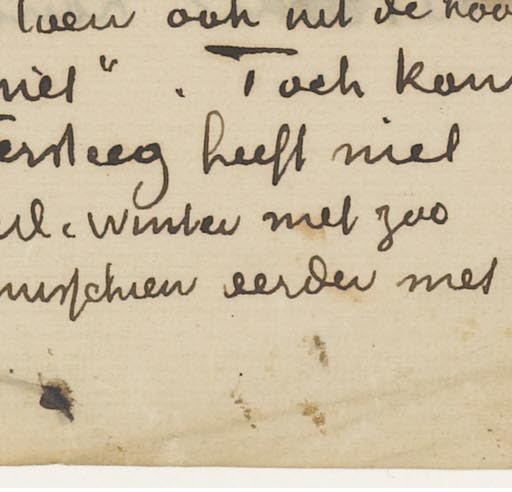 toen ook uit de noo
niet". Toch kon
ersteeg heeft niet
winter met zoo
misschien eerder met